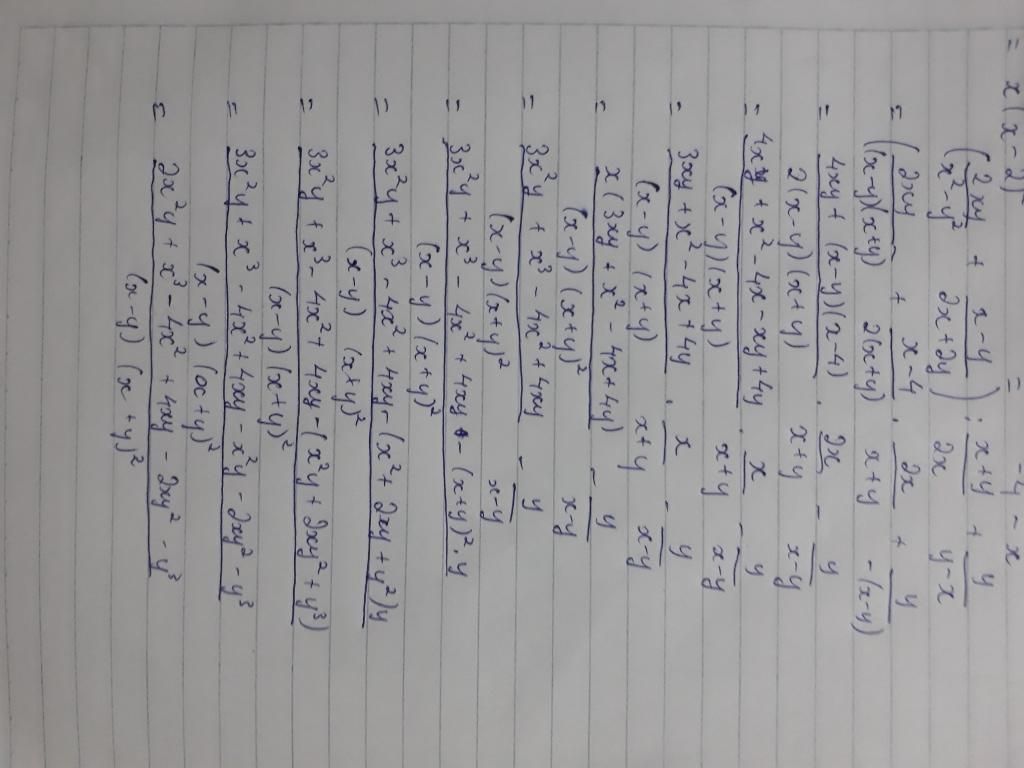 = x(x-2)² = -4 - x
(2xy/(x²-y²) + (x-y)/(2x+2y)) · (x+y)/2x + y/(y-x)
= (2xy/((x-y)(x+y)) + (x-4)/(2(x+y)) · 2x/(x+y) + y/(-(x-y))
= (4xy + (x-y)(x-4))/(2(x-y)(x+y)) · 2x/(x+y) - y/(x-y)
= (4xy + x² - 4x - xy + 4y)/((x-y)(x+y)) · x/(x+y) - y/(x-y)
= (3xy + x² - 4x + 4y)/((x-y)(x+y)) · x/(x+y) - y/(x-y)
= x(3xy + x² - 4x + 4y)/((x-y)(x+y)²) - y/(x-y)
= (3x²y + x³ - 4x² + 4xy)/((x-y)(x+y)²) - y/(x-y)
= (3x²y + x³ - 4x² + 4xy - (x+y)²·y)/((x-y)(x+y)²)
= (3x²y + x³ - 4x² + 4xy - (x² + 2xy + y²)y)/((x-y)(x+y)²)
= (3x²y + x³ - 4x² + 4xy - (x²y + 2xy² + y³))/((x-y)(x+y)²)
= (3x²y + x³ - 4x² + 4xy - x²y - 2xy² - y³)/((x-y)(x+y)²)
= (2x²y + x³ - 4x² + 4xy - 2xy² - y³)/((x-y)(x+y)²)